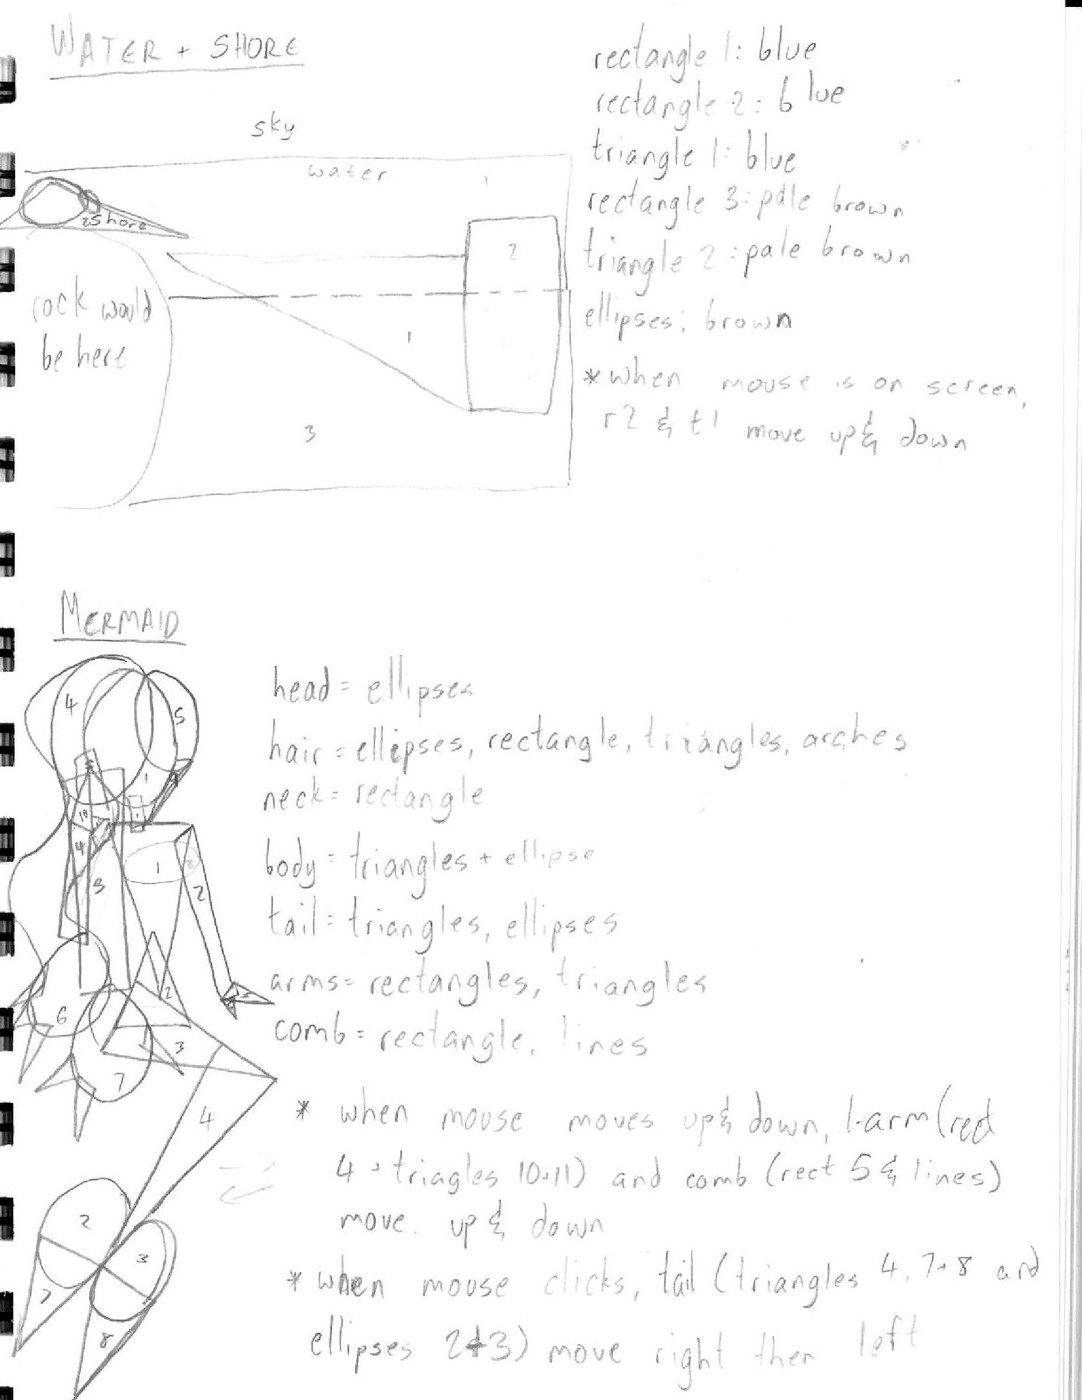 WATER + SHORE
sky
water
1
2 shore
2
rock would
be here
1
3
rectangle 1: blue
rectangle 2: blue
triangle 1: blue
rectangle 3: pale brown
triangle 2: pale brown
ellipses: brown
*when mouse is on screen,
r2 & t1 move up & down
MERMAID
4
5
1
9
10
11
1
2
3
2
6
3
7
4
2
3
7
8
head = ellipses
hair = ellipses, rectangle, triangles, arches
neck = rectangle
body = triangles + ellipse
tail = triangles, ellipses
arms = rectangles, triangles
comb = rectangle, lines
* when mouse moves up & down, l-arm (rect
4 + triagles 10+11) and comb (rect 5 & lines)
move. up & down
* when mouse clicks, tail (triangles 4, 7+8 and
ellipses 2+3) move right then left